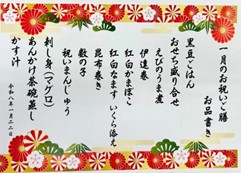 一月のお祝いご膳
お品書き
黒豆ごはん
おせち盛り合せ
えびのうま煮
伊達巻
紅白かまぼこ
紅白なます いくら添え
昆布巻き
数の子
祝いまんじゅう
刺し身(マグロ)
あんかけ茶碗蒸し
かす汁
令和八年一月二二日